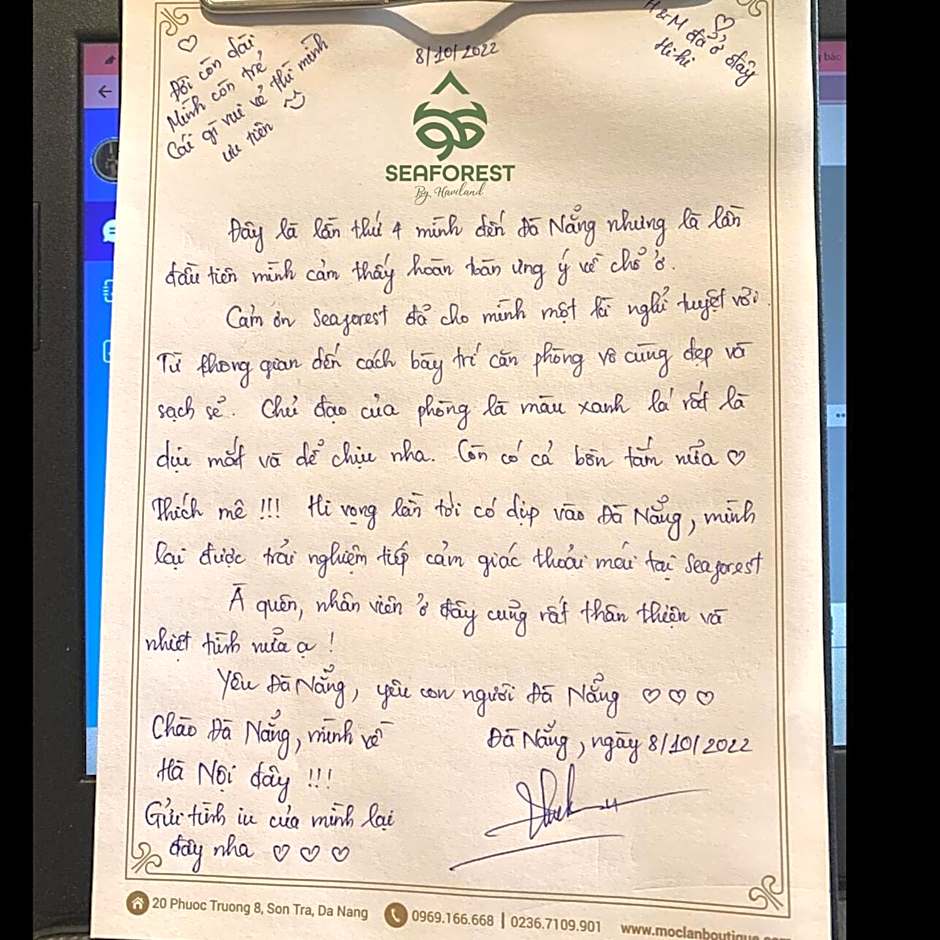 Đời còn dài
Mình còn trẻ,
Cái gì vui vẻ thì mình
ưu tiên
8/10/2022
H&M đã ở đây
Hi hi
SEAFOREST
By. Haviland
Đây là lần thứ 4 mình đến Đà Nẵng nhưng là lần
đầu tiên mình cảm thấy hoàn toàn ưng ý về chỗ ở.
Cảm ơn Seaforest đã cho mình một kì nghỉ tuyệt vời.
Từ không gian đến cách bày trí căn phòng vô cùng đẹp và
sạch sẽ. Chủ đạo của phòng là màu xanh lá rất là
dịu mắt và dễ chịu nha. Còn có cả bồn tắm nữa ♡
Thích mê !!! Hi vọng lần tới có dịp vào Đà Nẵng, mình
lại được trải nghiệm tiếp cảm giác thoải mái tại Seaforest
À quên, nhân viên ở đây cũng rất thân thiện và
nhiệt tình nữa ạ !
Yêu Đà Nẵng, yêu con người Đà Nẵng ♡ ♡ ♡
Chào Đà Nẵng, mình về
Hà Nội đây !!!
Gửi tình iu của mình lại
đây nha ♡ ♡ ♡
Đà Nẵng, ngày 8/10/2022
20 Phuoc Truong 8, Son Tra, Da Nang
0969.166.668 | 0236.7109.901
www.moclanboutique.com